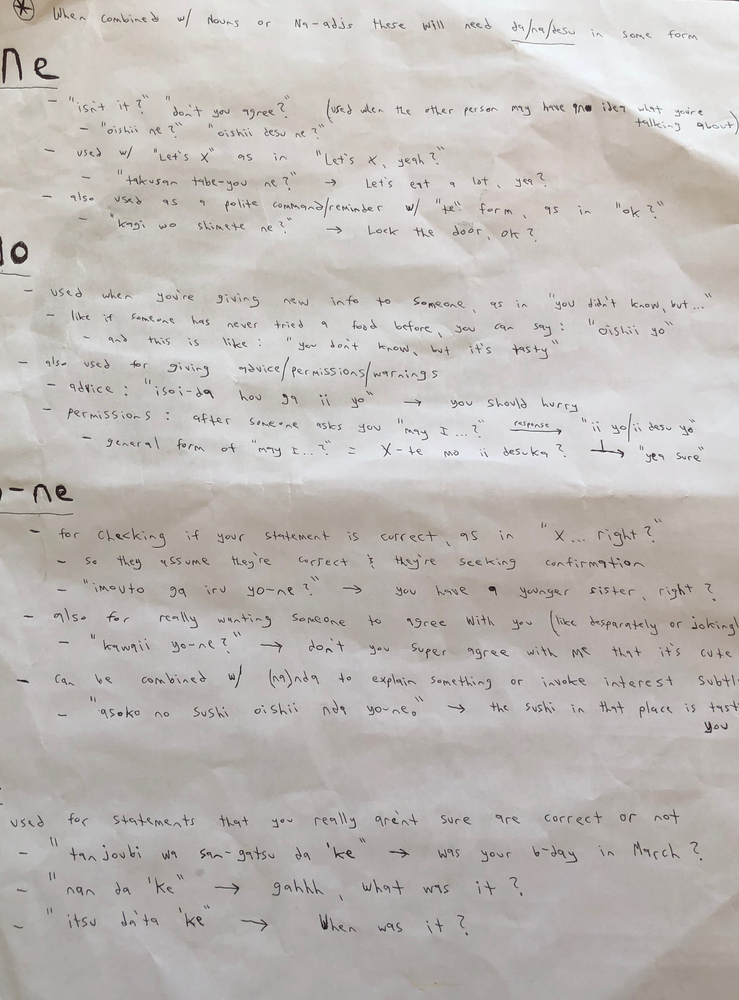 * When combined w/ Nouns or Na-adjs these will need da/na/desu in some form
ne
- "isn't it?" "don't you agree?" (used when the other person may have no idea what you're talking about)
- "oishii ne?" "oishii desu ne?"
- used w/ "Let's X" as in "Let's X, yeah?"
- "takusan tabe-you ne?" → Let's eat a lot, yea?
- also used as a polite command/reminder w/ "te" form, as in "ok?"
- "kagi wo shimete ne?" → Lock the door, ok?
yo
- used when you're giving new info to someone, as in "you didn't know, but..."
- like if someone has never tried a food before, you can say: "oishii yo"
- and this is like: "you don't know, but it's tasty"
- also used for giving advice/permissions/warnings
- advice: "isoi-da hou ga ii yo" → you should hurry
- permissions: after someone asks you "may I...?" response→ "ii yo/ii desu yo"
- general form of "may I...?" = X-te mo ii desuka? ↳ "yea sure"
-ne
- for checking if your statement is correct, as in "X... right?"
- so they assume they're correct & they're seeking confirmation
- "imouto ga iru yo-ne?" → you have a younger sister, right?
- also for really wanting someone to agree with you (like desparately or jokingl
- "kawaii yo-ne?" → don't you super agree with me that it's cute
- can be combined w/ (na)nda to explain something or invoke interest subtl
- "asoko no sushi oishii nda yo-ne。" → the sushi in that place is tast
you
used for statements that you really aren't sure are correct or not
- "tanjoubi wa san-gatsu da 'ke" → was your b-day in March?
- "nan da 'ke" → gahhh, what was it?
- "itsu da'ta 'ke" → When was it?